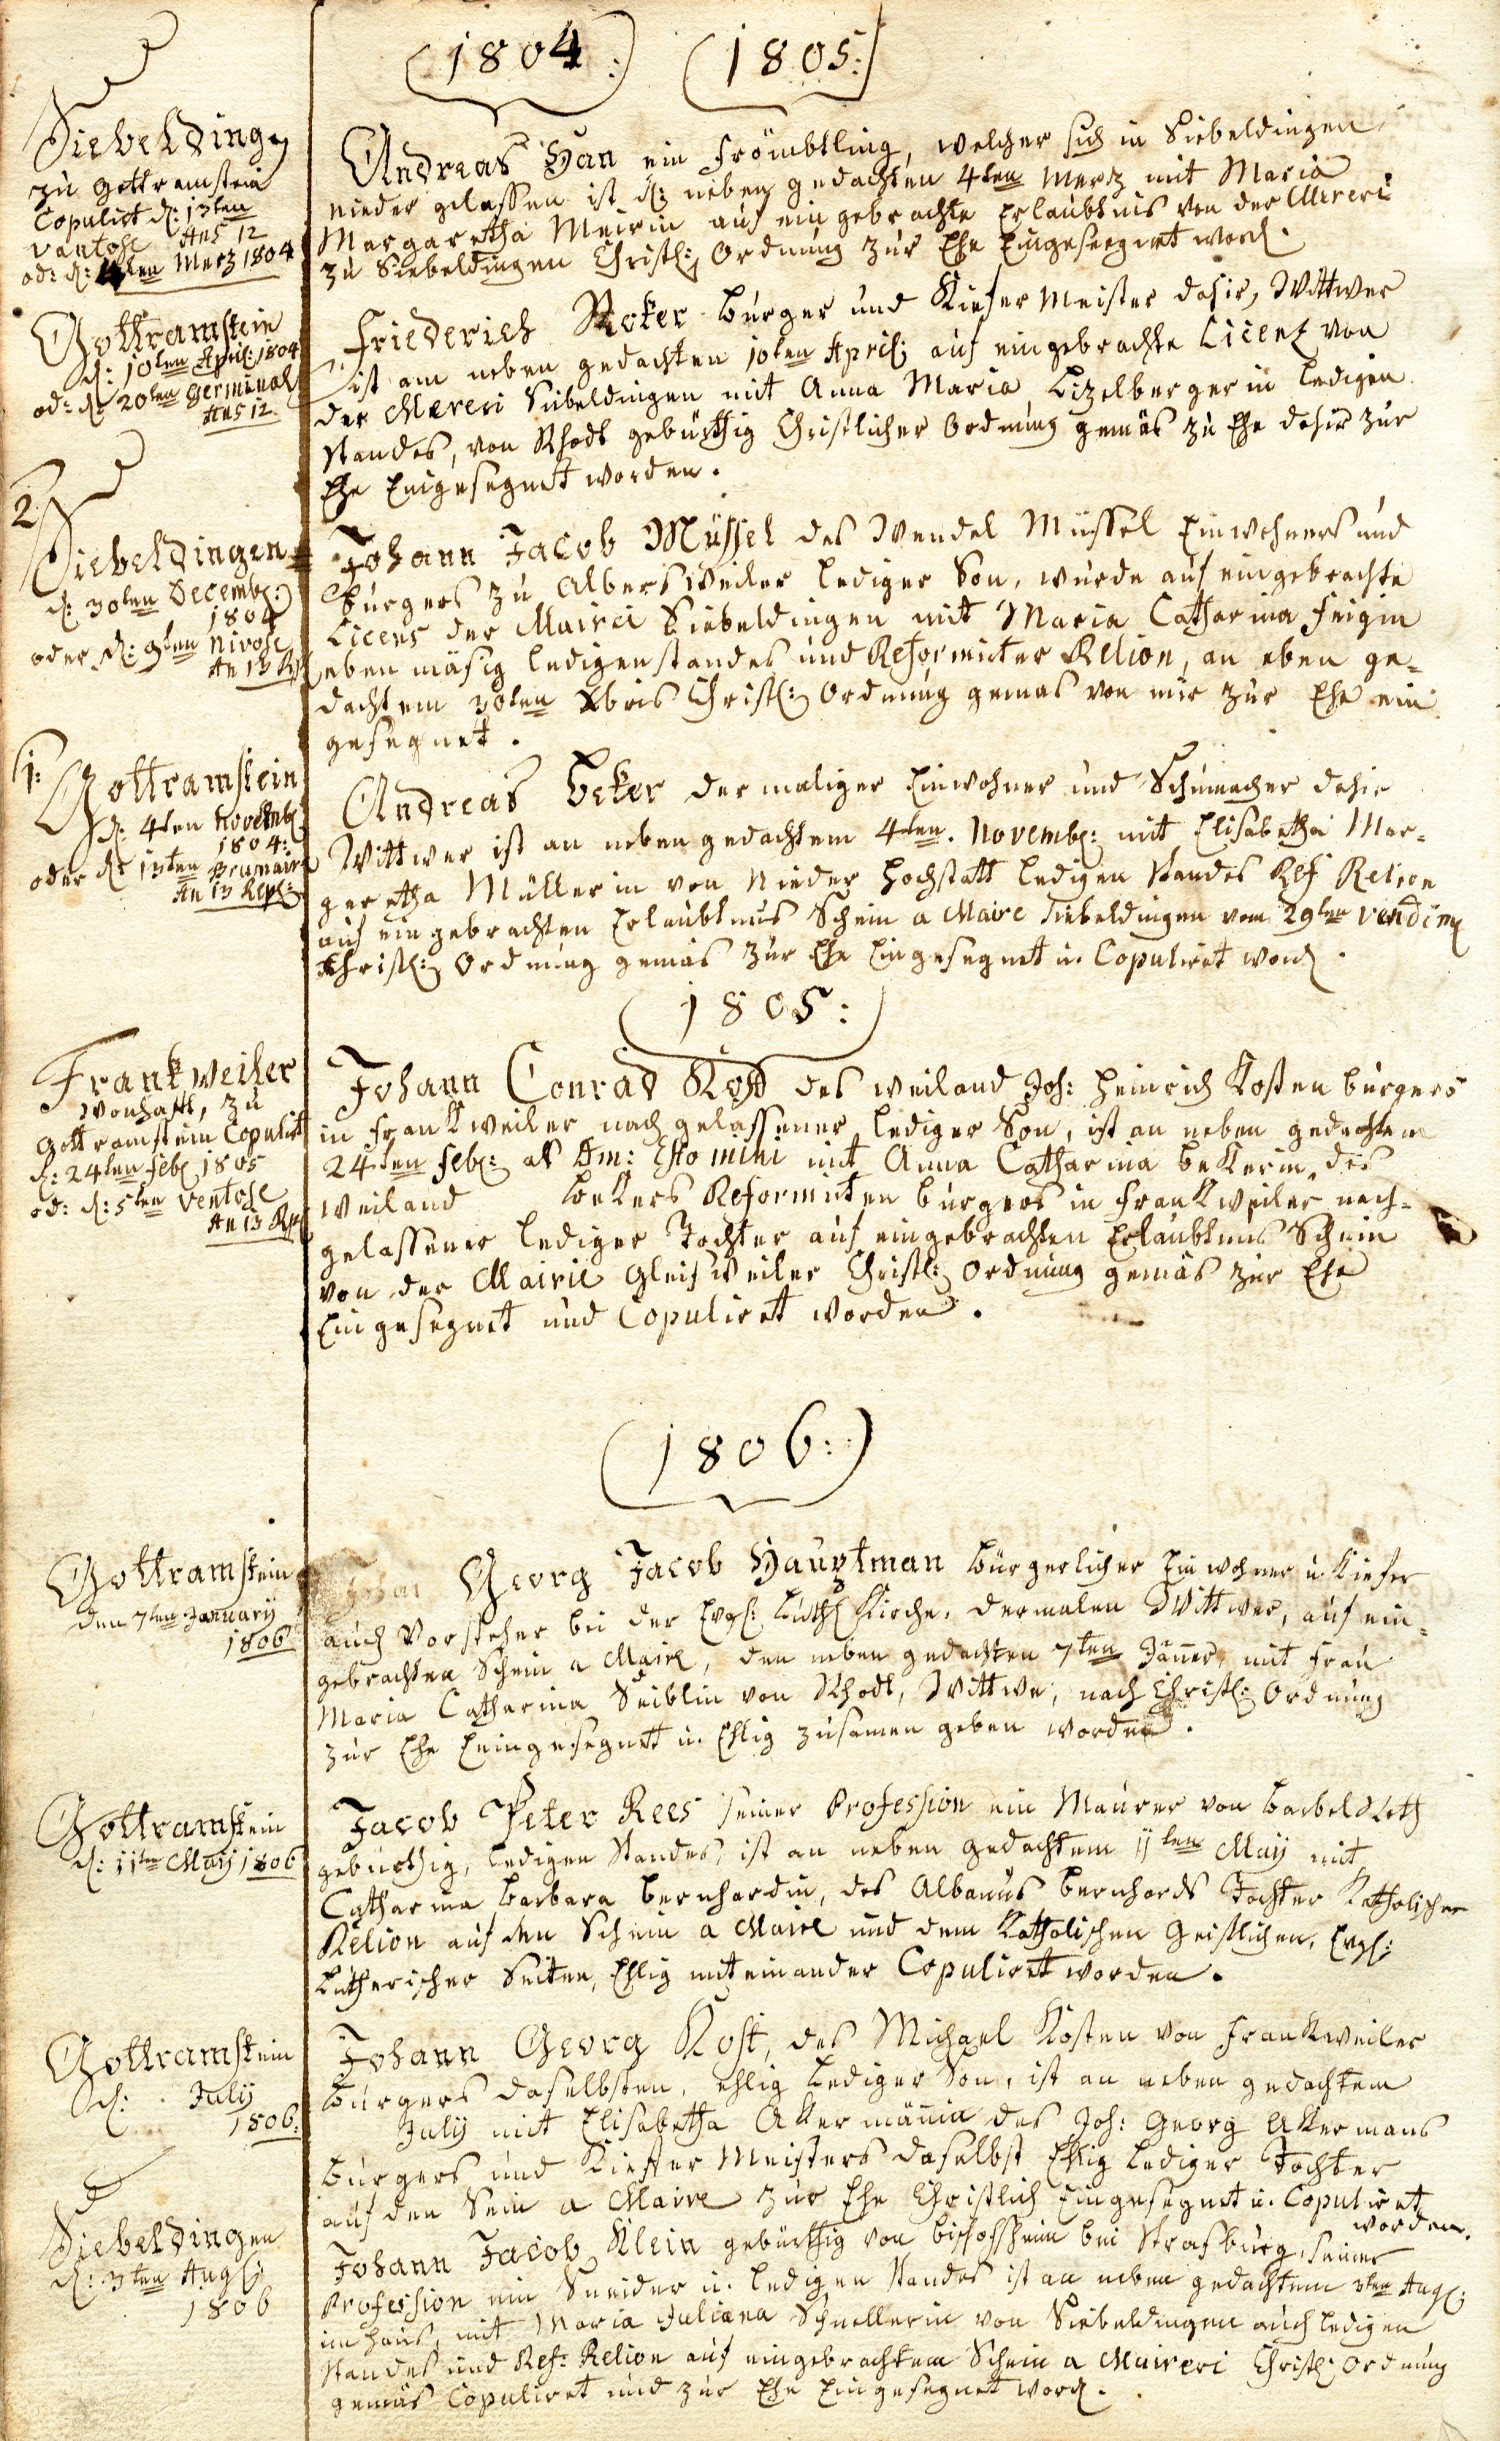 (1804:) (1805:)
Siebelding
zu Gottramstein
Copulirt d: 13ten
Vantose Ans 12
od: d: 4ten Mertz 1804
Andreas Han ein Frömbtling, welcher sich in Siebeldingen
nieder gelassen ist d: neben gedachten 4ten Mertz mit Maria
Margaretha Meirin auf ein gebrachte Erlaubtnis von der Mereri
zu Siebeldingen Christl: Ordnung zur Ehe Eingeseegnet word.
Gottramstein
d: 10ten April: 1804
od: d: 20ten Germinal
Ans 12
Friederich Burger und Kiefer Meister dahir, Wittwer
ist am neben gedachten 10ten April: auf eingebrachte Licenz von
der Mereri Siebeldingen mit Anna Maria Lizelbergerin ledigen
standes, von Rhodt gebürthig Christlicher Ordnung gemäs zu Ehe dahir zur
Ehe Eingesegnet worden.
2.
Siebeldingen
d: 30ten Decemb:
1804
oder d: 9ten Nivose
An 13 R
Johann Jacob Müssel des Wendel Müssel Einwohners und
Burgers zu Albersweiler lediger Son, wurde auf eingebrachte
Licens der Mairei Siebeldingen mit Maria Catharina Feigin
eben mäsig ledigenstandes und Reformirter Relion, an eben ge-
dachtem 30ten Xbris Christl: Ordnung gemäs von mir zur Ehe ein
gesegnet.
1:
Gottramstein
d: 4ten Novemb
1804:
oder d: 13ten Brumaire
An 13 Rep:
Andreas Beker der maliger Einwohner und Schumacher dahir
Wittwer ist an neben gedachtem 4ten. Novemb: mit Elisabetha Mar-
garetha Müllerin von Nieder Hochstatt ledigen standes Ref Relion
auf ein gebrachten Erlaubtnus Schein a Maire Siebeldingen vom 29ten Vendim
Christl: Ordnung gemäs zur Ehe Eingesegnet u. Copuliret word.
(1805:)
Frankweiler
Wonhafft, zu
Gottramstein Copulirt
d: 24ten Feb 1805
od: d: 5ten Ventose
An 13 Rp
Johann Conrad Kost des weiland Joh: Heinrich Kosten burgers
in Frankweiler nach gelassener lediger Son, ist an neben gedachtem
24ten Feb: als Dm: Esto mihi mit Anna Catharina Bekerin, des
Weiland Bekers Reformirten burgers in Frankweiler nach-
gelassener lediger Tochter auf eingebrachten Erlaubtnus Schein
von der Mairie Gleisweiler Christl: Ordnung gemäs zur Ehe
Eingesegnet und Copuliret worden.
(1806:)
Gottramstein
den 7ten January
1806
Johan Georg Jacob Hauptman Bürgerlicher Einwohner u. Kiefer
auch Vorsteher bei der Evgl: Luth Kirche, dermalen Wittwer, auf ein-
gebrachten Schein a Maire, den neben gedachten 7ten Jäner, mit Frau
Maria Catharina Seiblin von Rhodt, Wittwe, nach Christl: Ordnung
zur Ehe Eeingesegnet u. Ehlig zusamen geben worden.
Gottramstein
d: 11ten May 1806
Jacob Peter Rees seiner Profession ein Maurer von Barbeldroth
gebürthig, ledigen Standes, ist an neben gedachtem 11ten May mit
Catharina Barbara Bernhardin, des Albanus Bernhards Tochter Katholischer
Relion auf den Schein a Maire und dem Katholischen Geistlichen, Evgl:
Lutherischer Seiten, Ehlig miteinander Copuliret worden.
Gottramstein
d: July
1806.
Johann Georg Kost, des Michael Kosten von Frankweiler
Burgers daselbsten, ehlig lediger Son, ist an neben gedachtem
July mit Elisabetha Akermänin des Joh: Georg Akermans
Burgers und Kieffer Meisters daselbst Ehlig lediger Tochter
auf den Sein a Maire zur Ehe Christlich Eingesegnet u. Copuliret
worden.
Siebeldingen
d: 3ten Aug
1806
Johann Jacob Klein gebürthig von Bischofsheim bei Strasburg, seiner
Profession ein Sneider u. ledigen Standes ist an neben gedachtem 3ten Aug:
im haus, mit Maria Juliana Schnellerin von Siebeldingen auch ledigen
standes und Ref: Relion auf eingebrachtem Schein a Maireri Christl: Ordnung
gemäs Copuliret und zur Ehe Eingesegnet word.